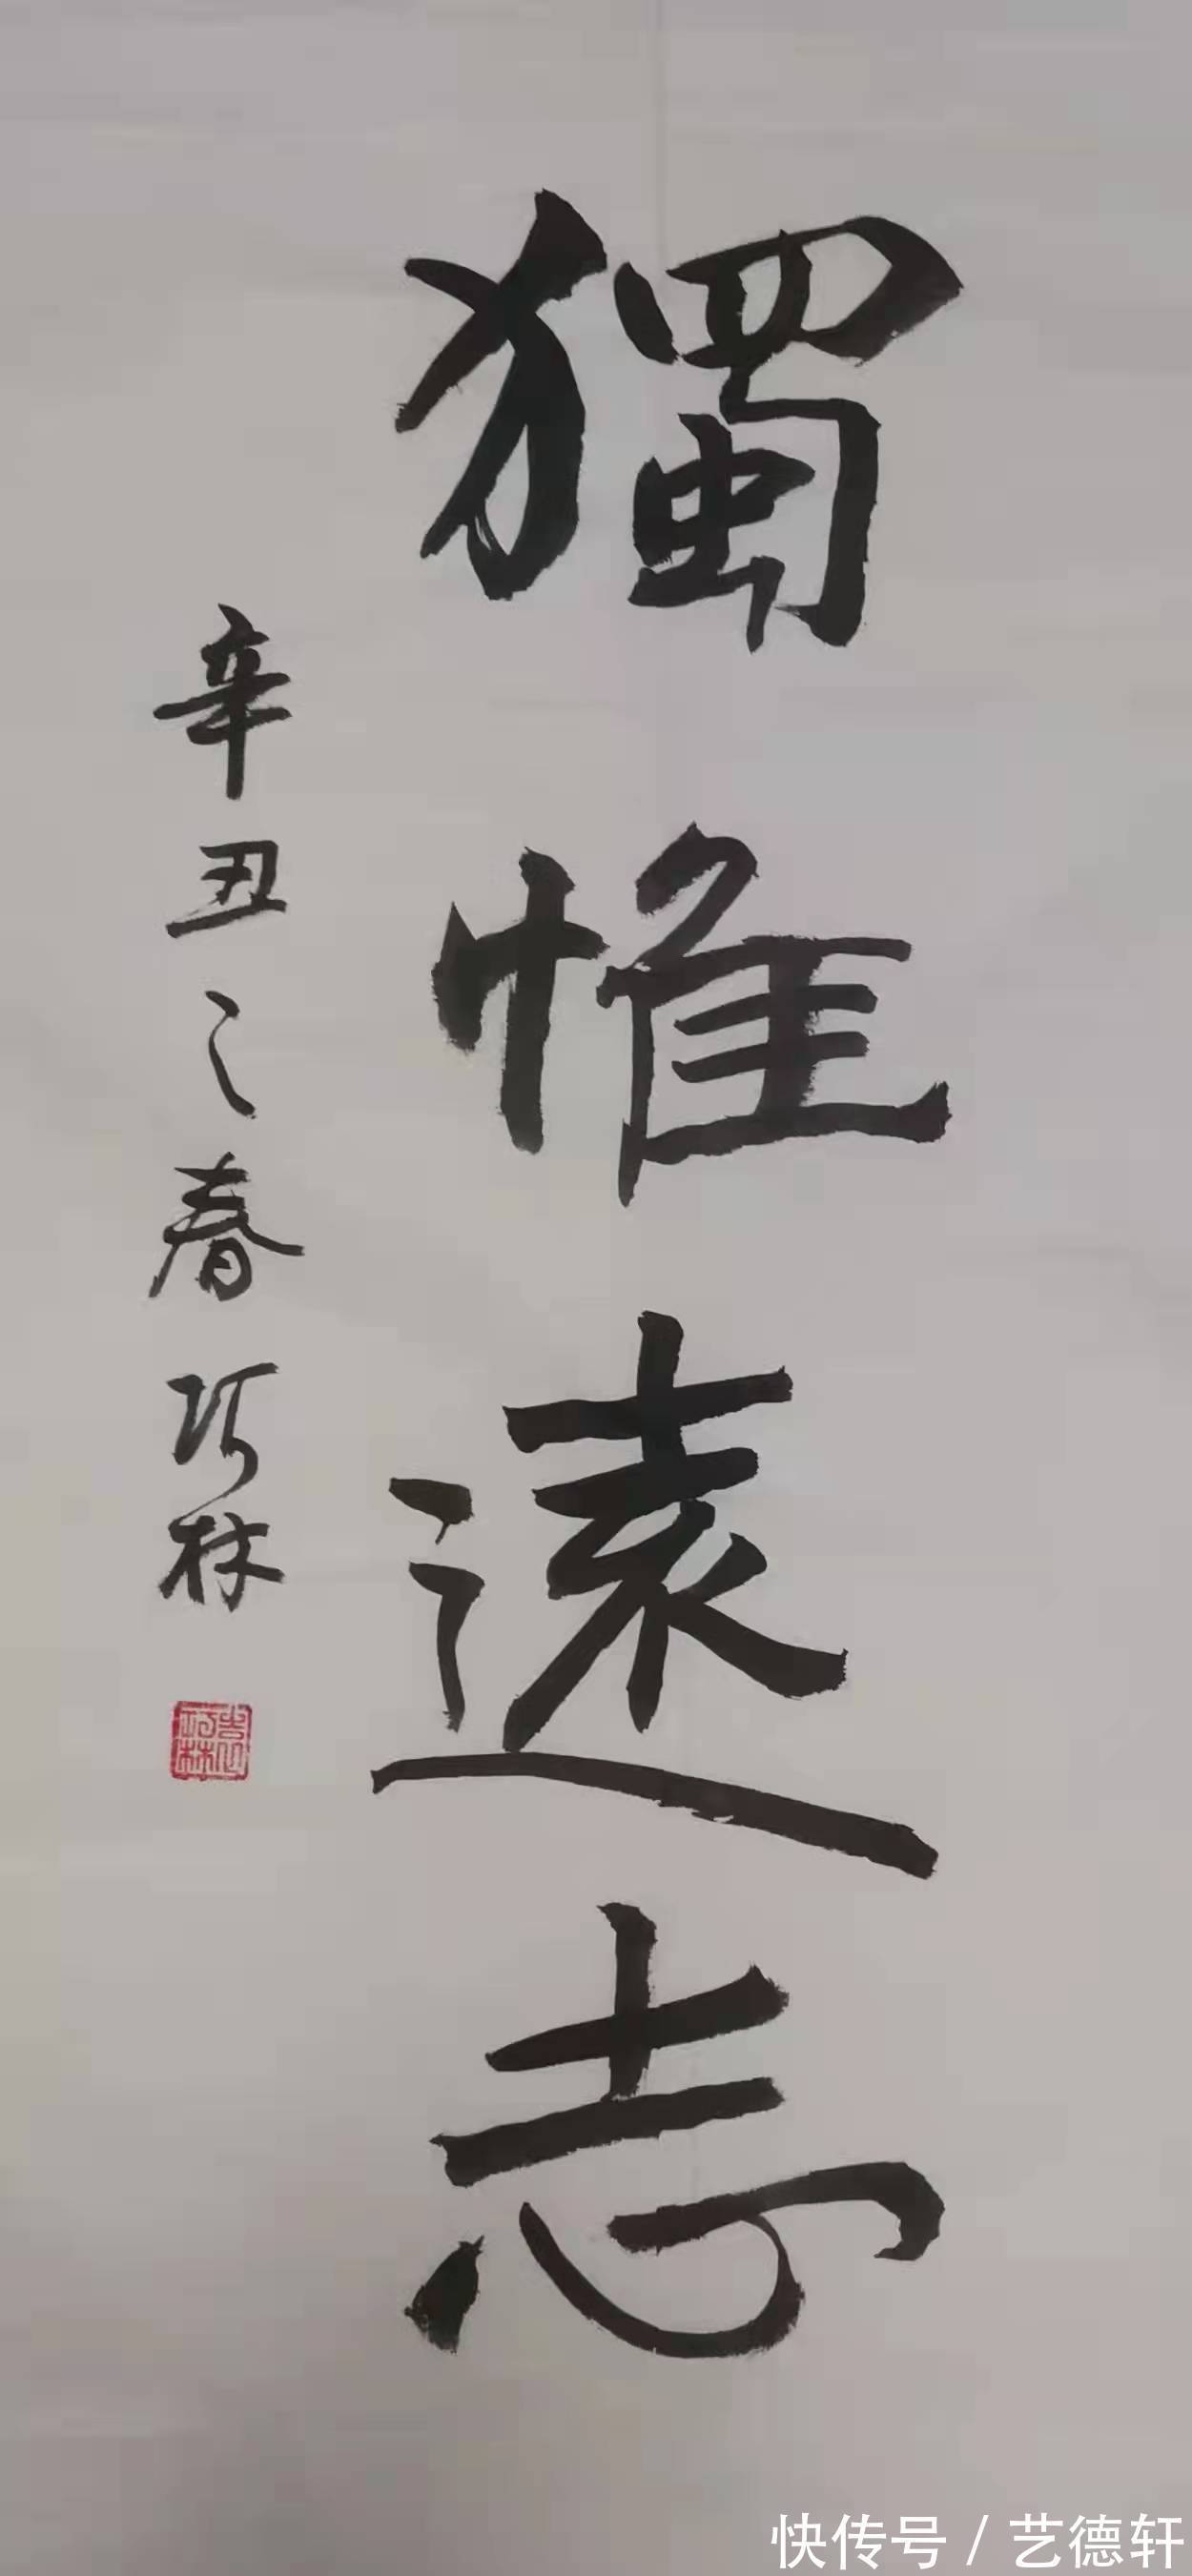 獨惟遠志
辛丑之春 巧林
快传号 / 艺德轩